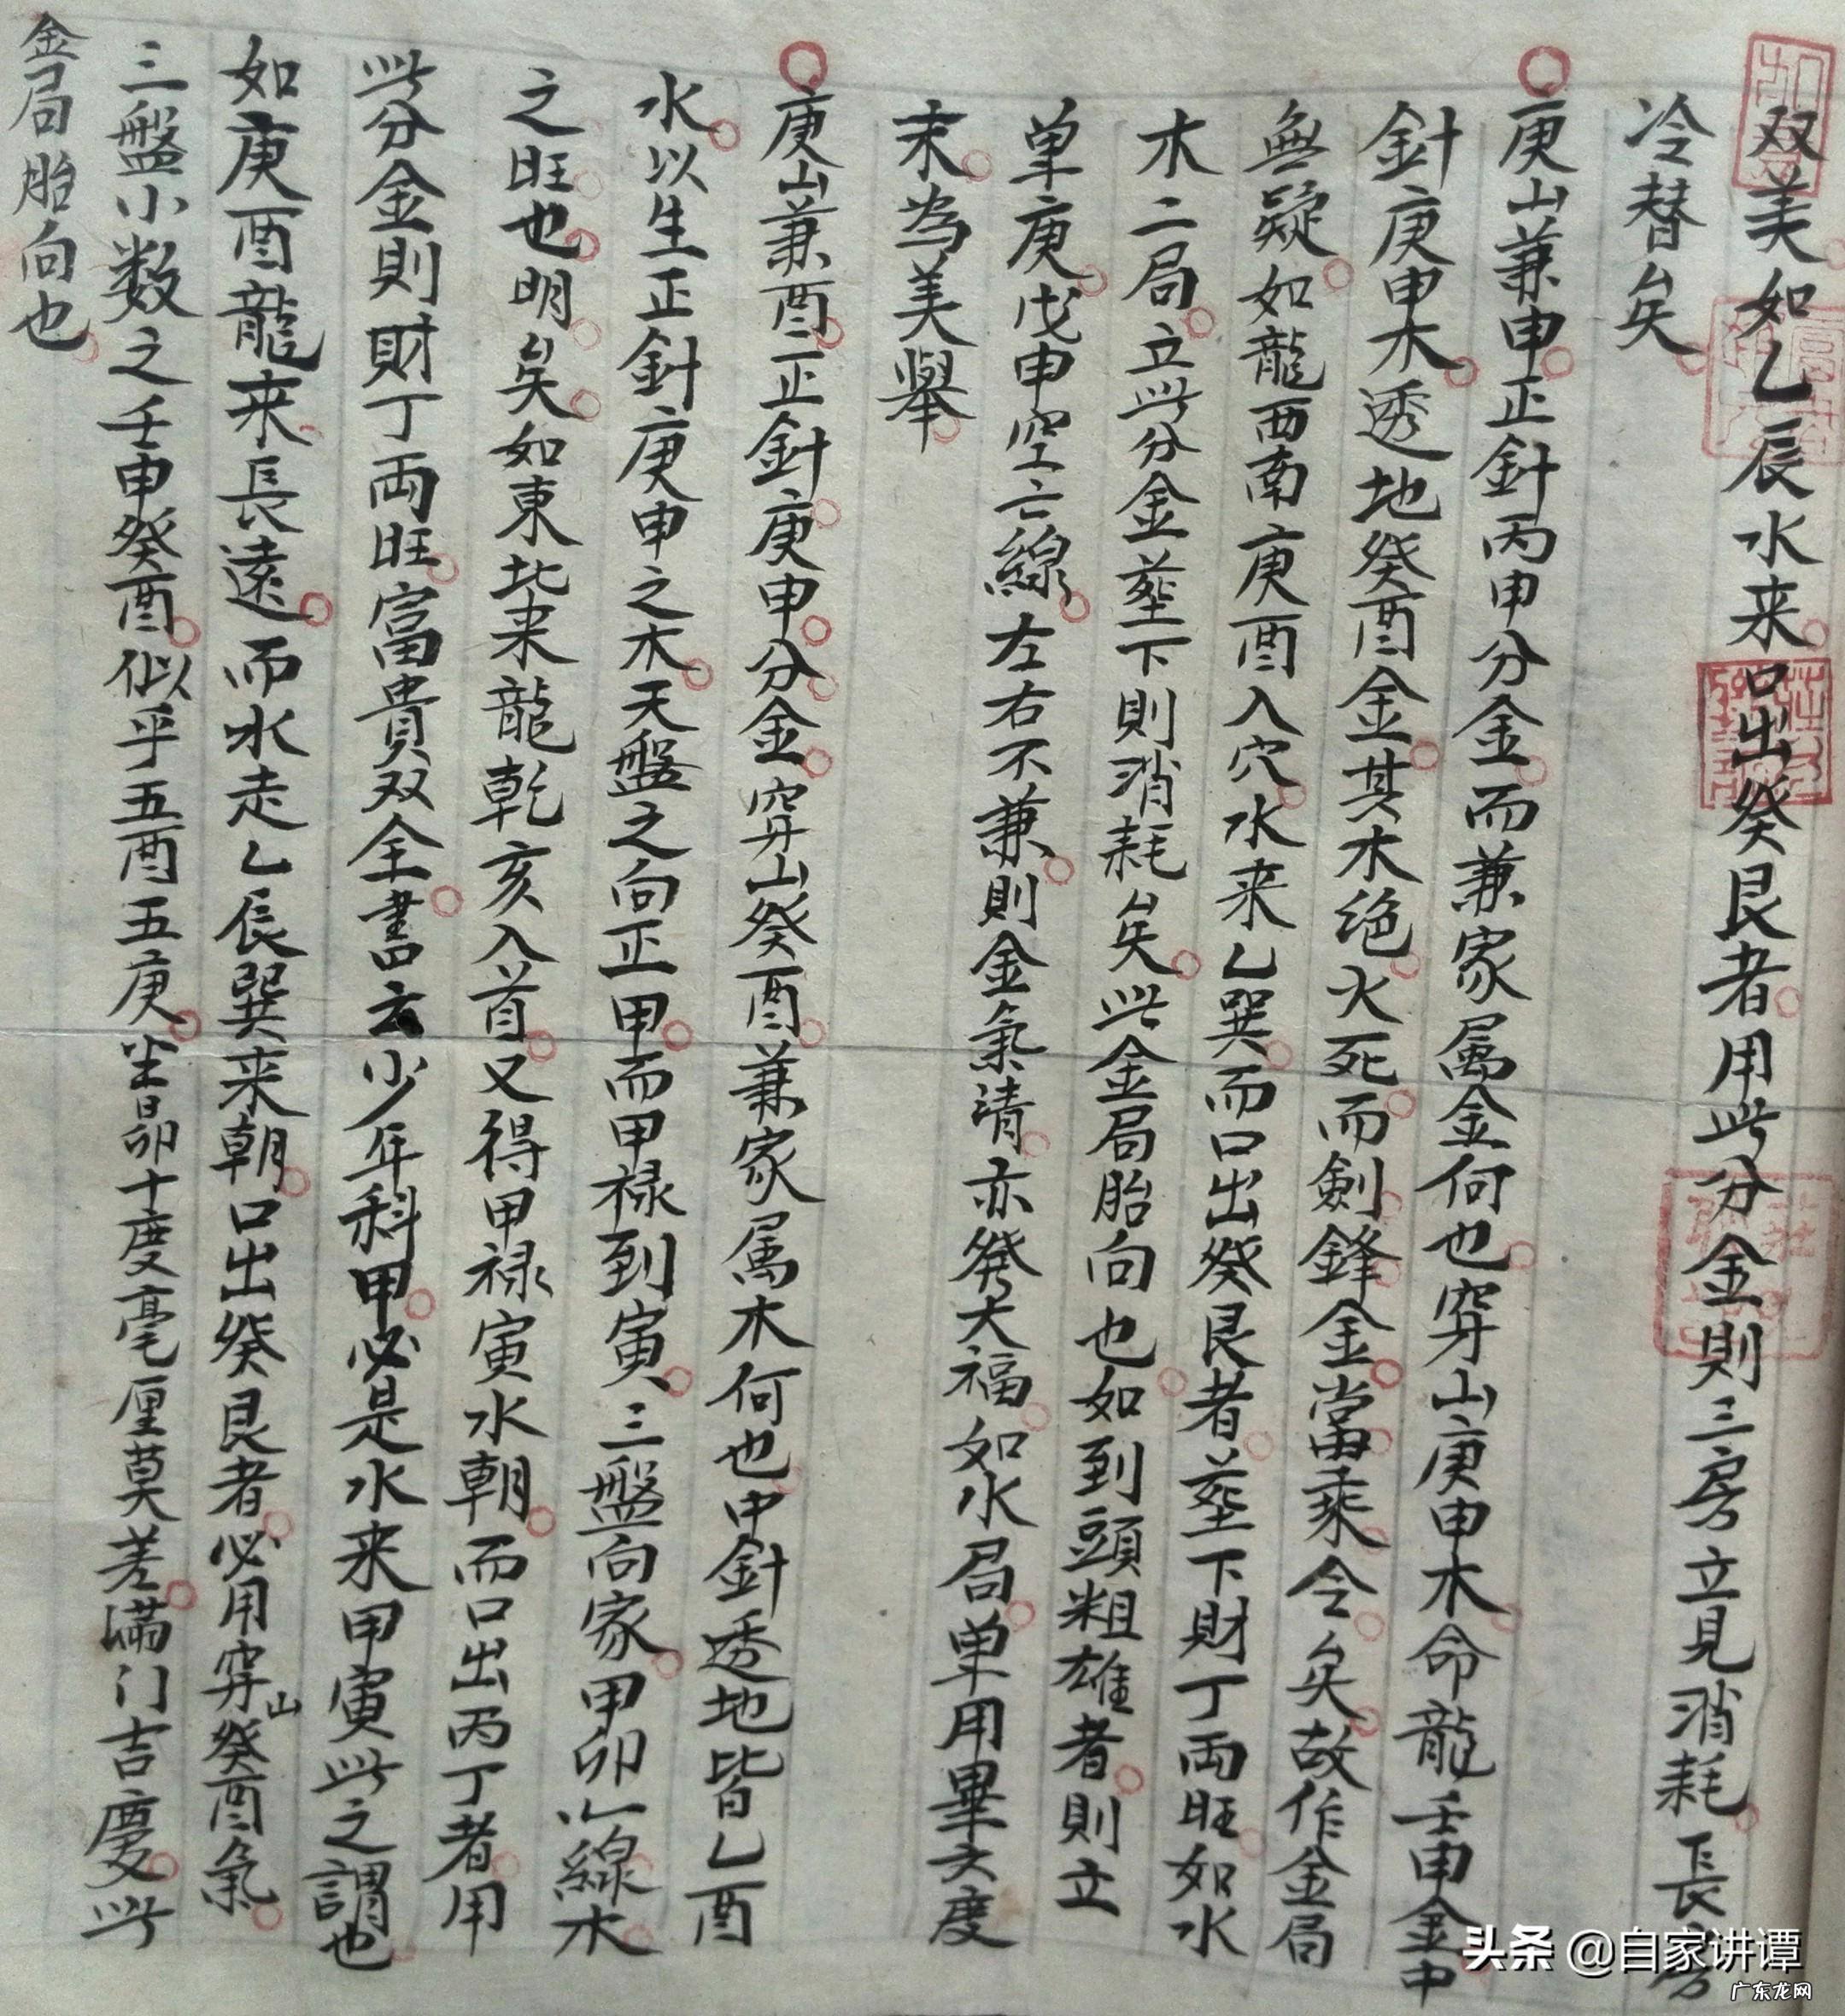 双美如乙辰水来口出癸艮者用此分金則三房立見消耗長房
冷替矣
庚山兼申正針丙申分金而兼家屬金何也穿山庚申木命龍壬申金中
針庚申木透地癸酉金其木绝火死而劍鋒金當乘令矣故作金局
無疑如龍西南庚酉入穴水来乙巽而口出癸艮者塟下財丁両旺如水
木二局立此分金塟下則消耗矣此金局胎向也如到頭粗雄者則立
単庚戊申空亡線左右不兼則金氣清亦発大福如水局単用畢六度
末為美舉
庚山兼酉正針庚申分金穿山癸酉兼家属木何也中針透地皆乙酉
水以生正針庚申之木天盤之向正甲而甲禄到寅三盤向家甲卯線木
之旺也明矣如東北来龍乾亥入首又得甲禄寅水朝而口出丙丁者用
此分金則財丁両旺富貴双全書云少年科甲必是水来甲寅此之謂也
如庚酉龍来長遠而水走乙辰巽来朝口出癸艮者必用穿山癸酉氣
三盤小数之壬申癸酉似乎五酉五庚坐昴十度毫厘莫差滿门吉慶此
金局胎向也
头条 @自家讲谭
广东龙网